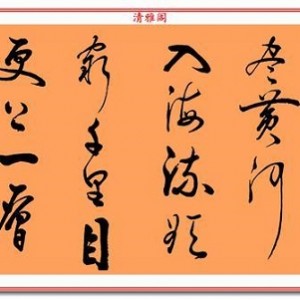 清雅阁
尽黄河
入海流欲
窮千里目
更上一層